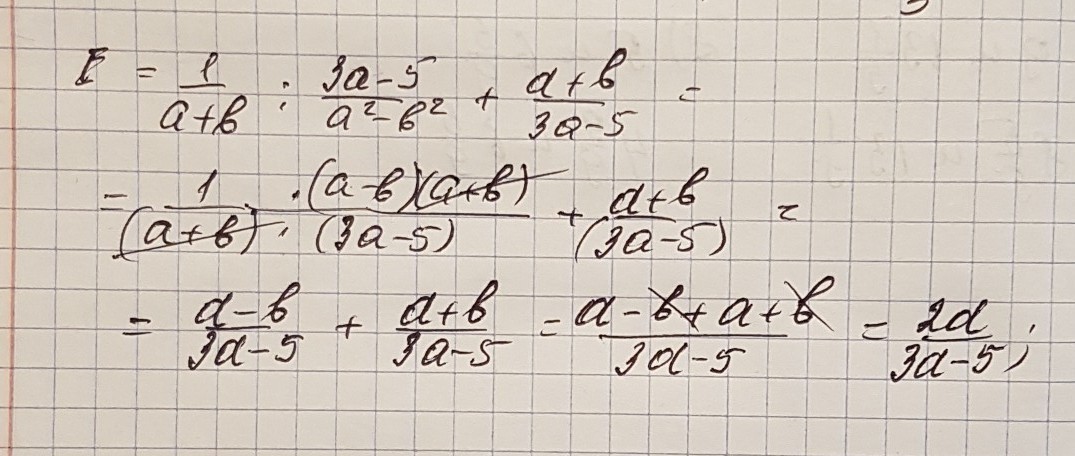 E = 1/(a+b) : (3a-5)/(a²-b²) + (a+b)/(3a-5) =
= 1·(a-b)(a+b)/((a+b)·(3a-5)) + (a+b)/(3a-5) =
= (a-b)/(3a-5) + (a+b)/(3a-5) = (a-b+a+b)/(3a-5) = 2a/(3a-5);